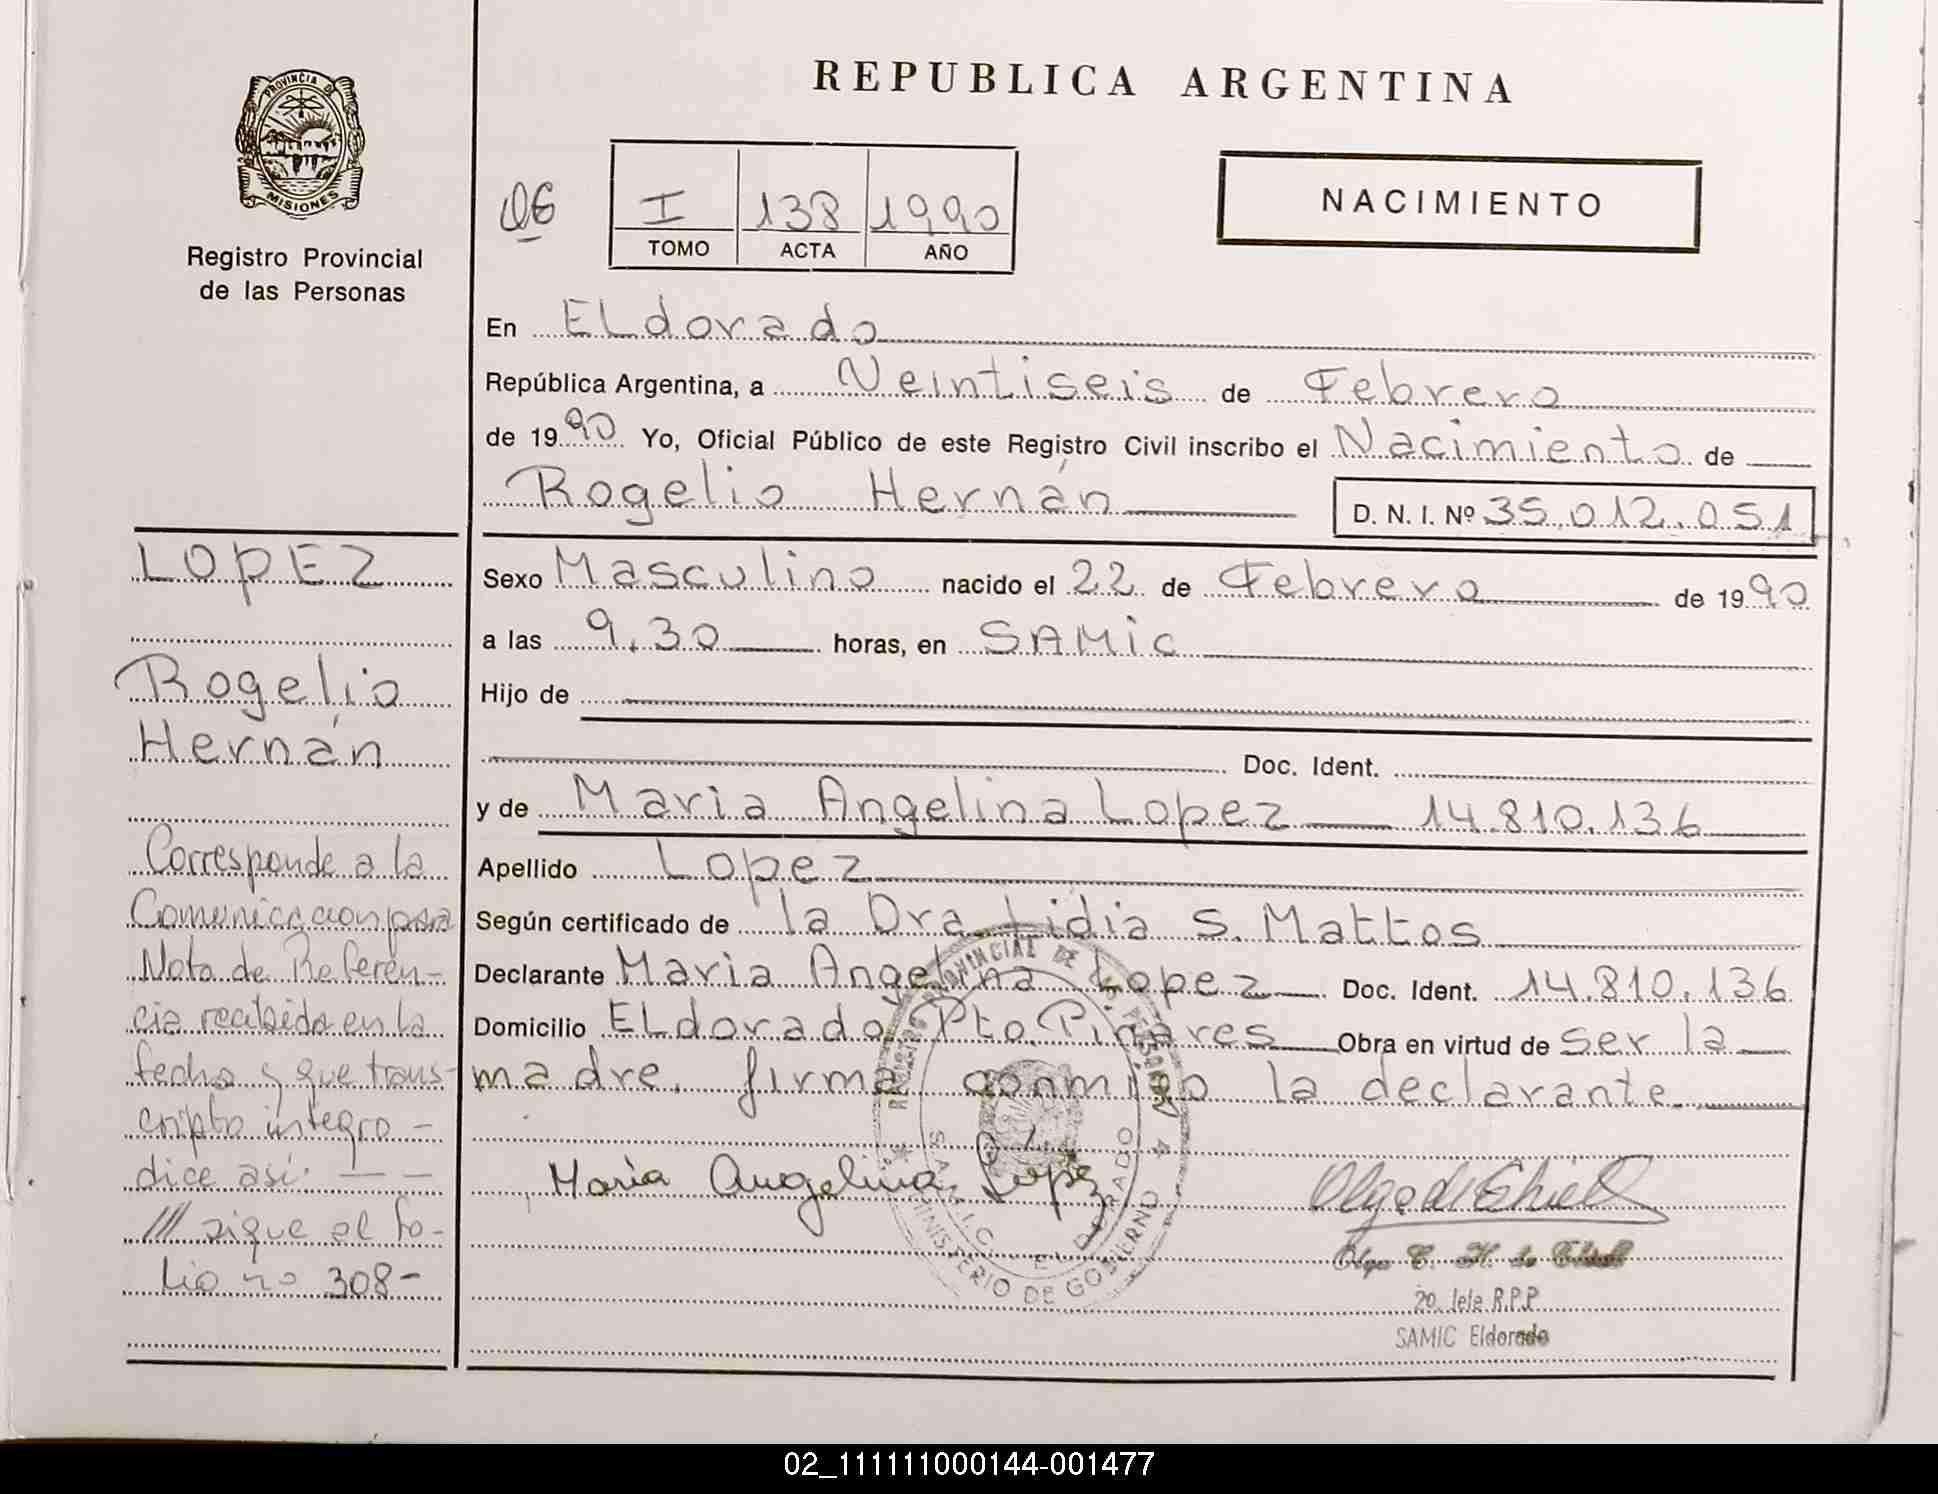 REPUBLICA ARGENTINA
PROVINCIA DE
MISIONES
Registro Provincial
de las Personas
06
I 138 1990
TOMO ACTA AÑO
NACIMIENTO
En ELdorado
República Argentina, a Veintiseis de Febrero
de 1990 Yo, Oficial Público de este Registro Civil inscribo el Nacimiento de
Rogelio Hernán D. N. I. Nº 35.012.051
Sexo Masculino nacido el 22 de Febrero de 1990
a las 9.30 horas, en SAMIC
Hijo de
Doc. Ident.
y de Maria Angelina Lopez 14.810.136
Apellido Lopez
Según certificado de la Dra. Lidia S. Mattos
Declarante Maria Angelina Lopez Doc. Ident. 14.810.136
Domicilio ELdorado Pto. Pinares Obra en virtud de ser la
madre. firma conmigo la declarante.
Maria Angelina Lopez
Olga C. H. de
Jefe R.P.P
SAMIC Eldorado
REGISTRO PROVINCIAL DE LAS PERSONAS
S.A.M.I.C. ELDORADO
MINISTERIO DE GOBIERNO
LOPEZ
Rogelio
Hernán
Corresponde a la
Comunicacion por
Nota de Referen-
cia recibida en la
fecha y que trans-
cripto integro -
dice asi: — —
/// sigue el fo-
lio nº 308-
02_111111000144-001477